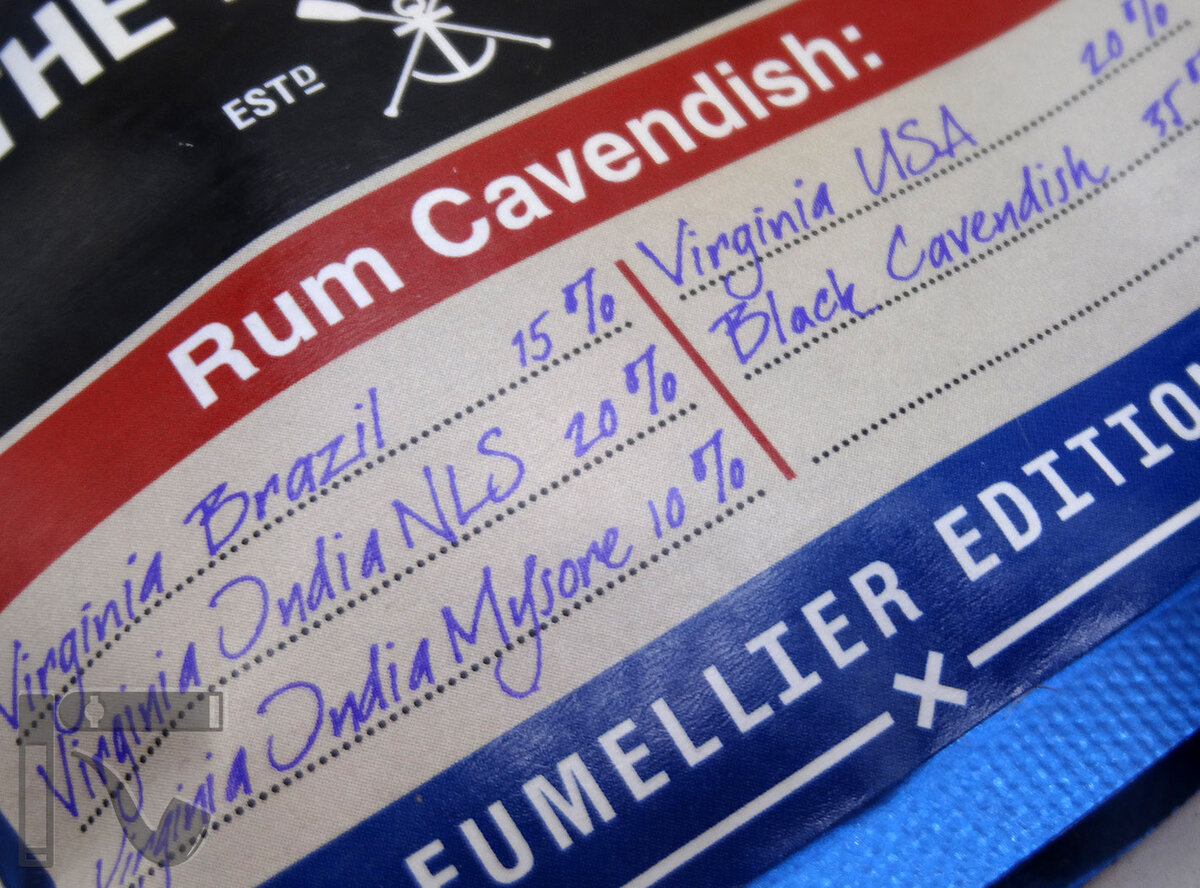 THE
ESTD
Rum Cavendish:
Virginia Brazil 15%
Virginia India NLS 20%
Virginia India Mysore 10%
Virginia USA 20%
Black Cavendish 35%
FUMELLIER EDITION